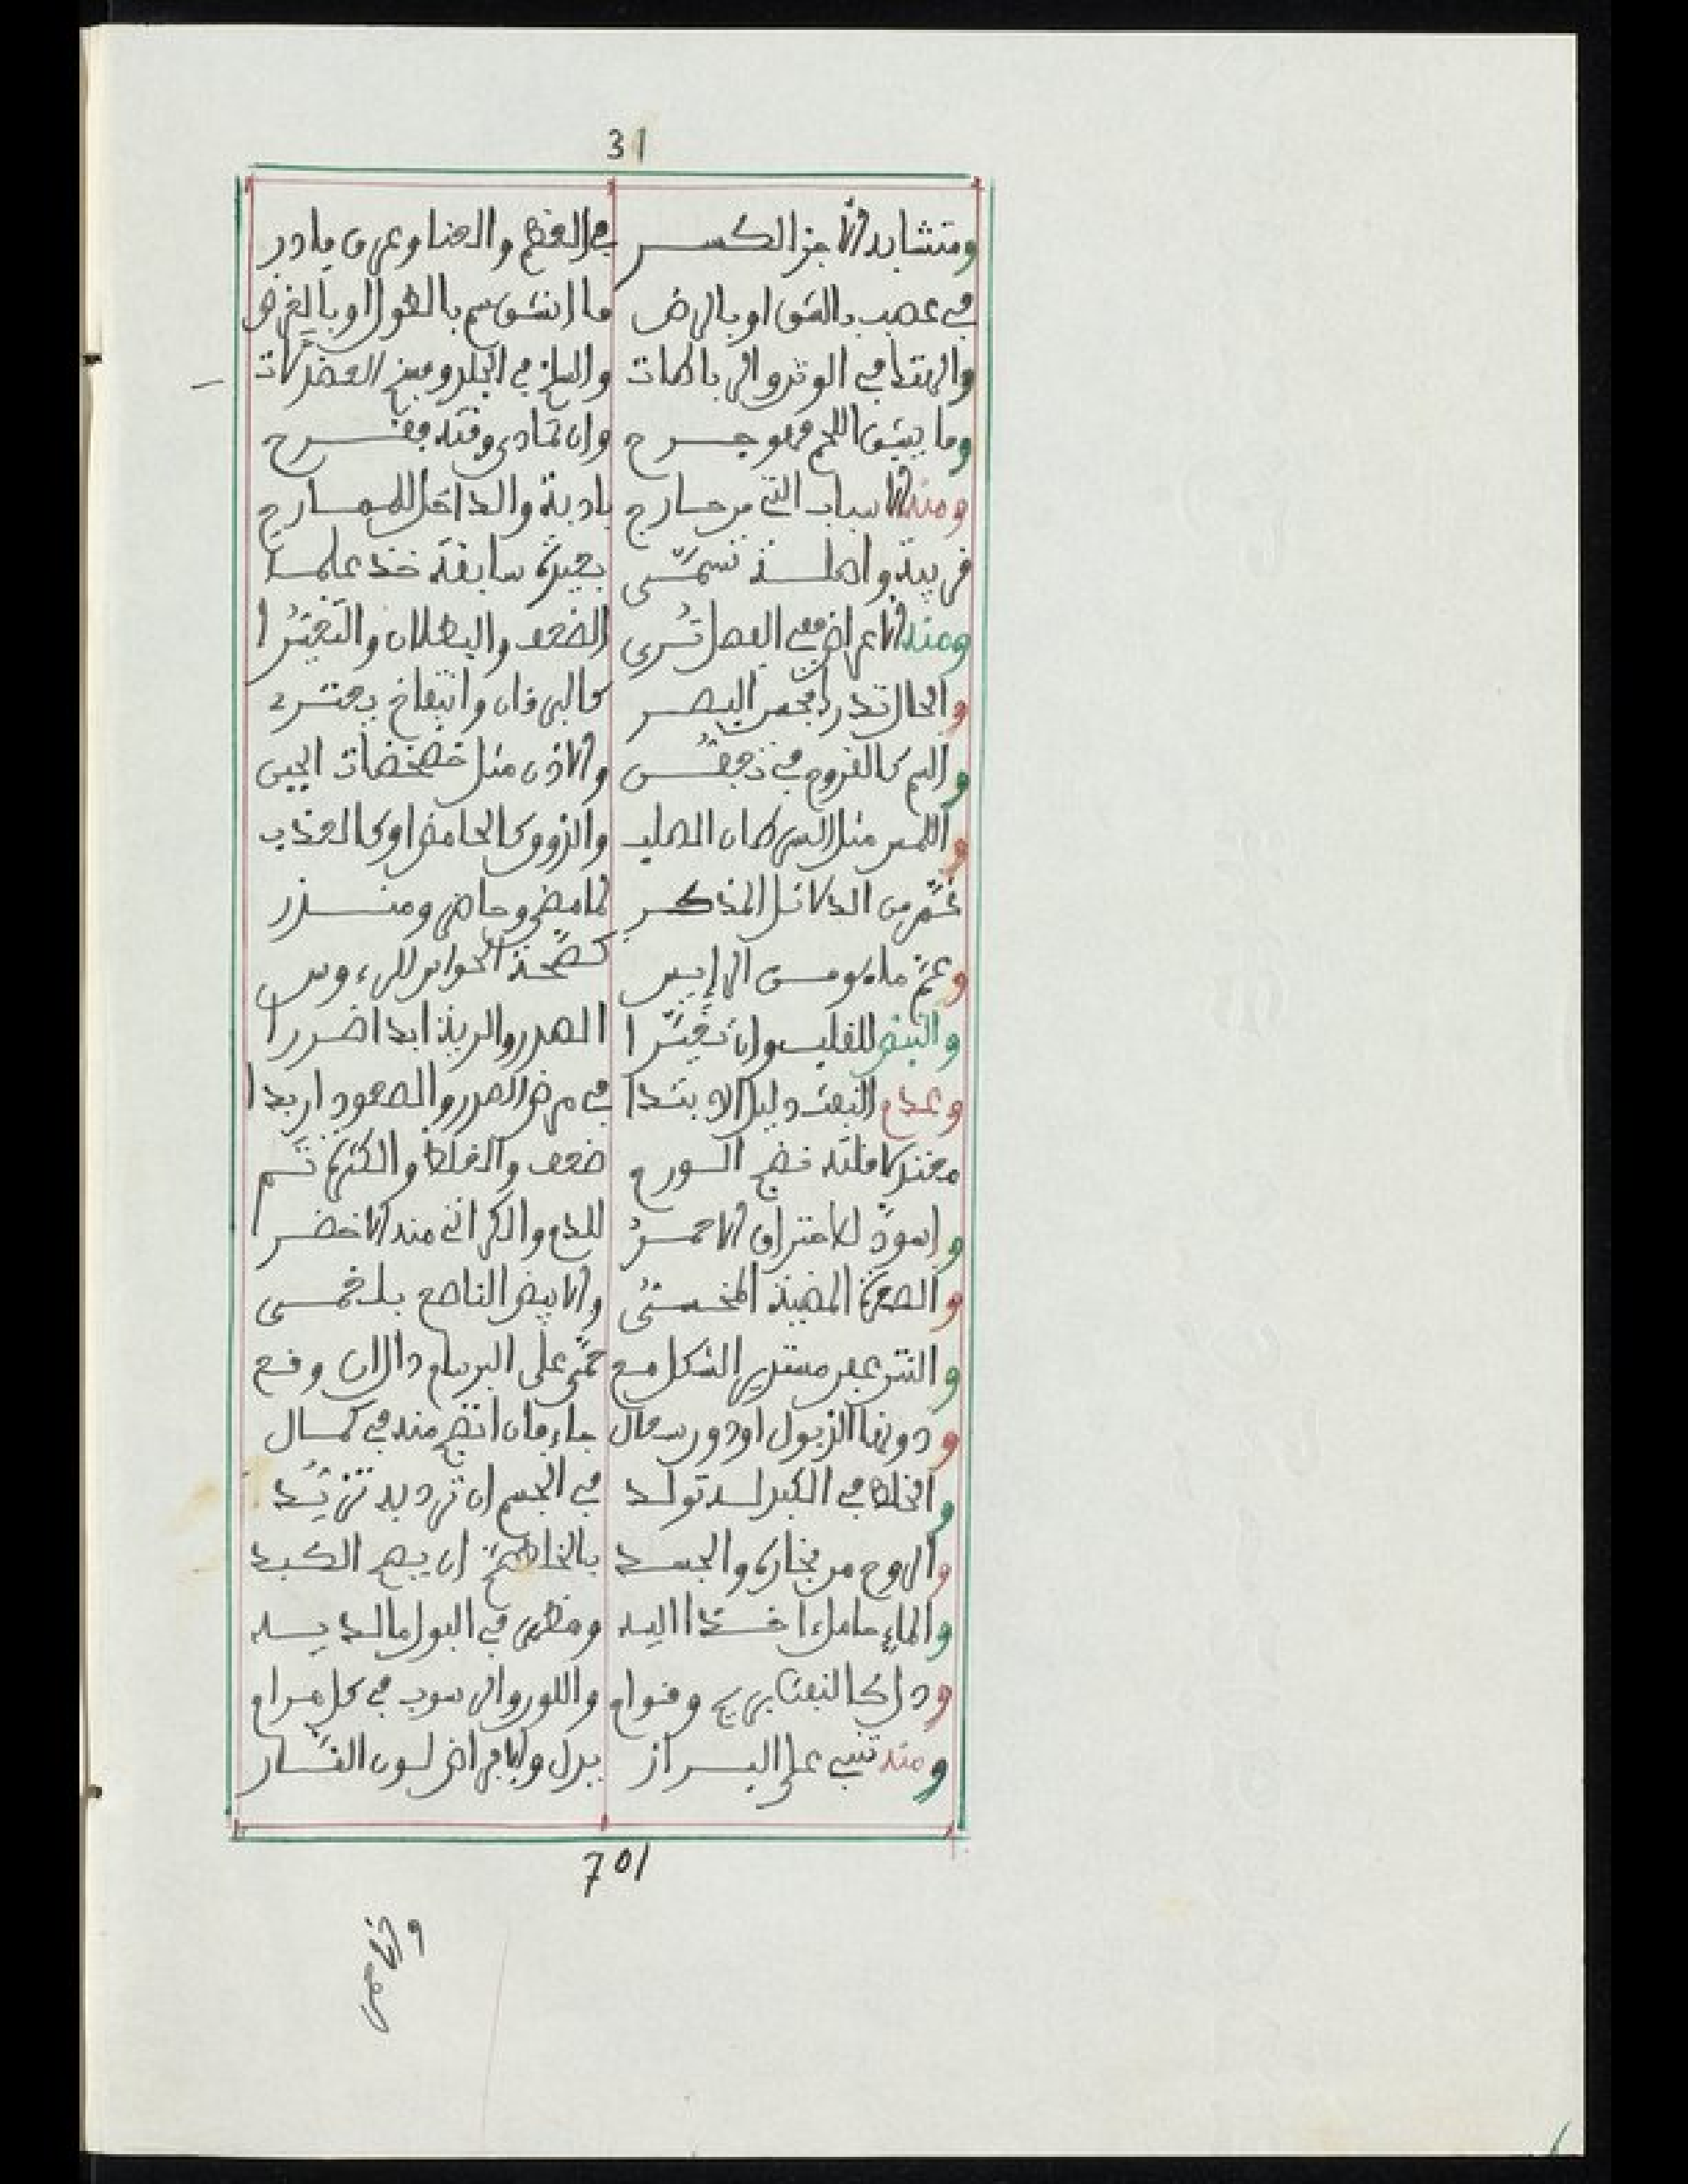 31
ومتشابه الاجزا الكسر في العظم والعنا وعرق بادر
في عصب بالشق او بالرض ما انشق سم بالطول او بالعرض
والهتك في الوتر والرباطات والسلخ في الجلد وفسخ العضلات
وما يشق اللحم فهو جرح وان تمادى وقته فقرح
ومنه الاسباب التي من خارج بادية والداخل للمعارج
قريبة واصلة تسمى بعيدة سابقة خذ علما
ومنه الاعراض ففي الفعل ترى الضعف والبطلان والتغيرا
والحال تدرك بحس البصر كاليرقان وانتفاخ يعتري
والشم كالقروح في تنفس والاذن مثل خضخضات الحبن
واللمس مثل السرطان الصلب والذوق كالحامض او كالعذب
ثم من الدلائل المذكر لما مضى وحاضر ومنذر
وعم ما هو من الرئيس كصحة الحواس للرءوس
والنبض للقلب وان تغيرا الصدر والرية ابدا ضررا
وعدم النفث دليل الابتدا في مرض الصدر والصعود اربدا
فعند قلته نضج الورم ضعف والغلظ والكثرة تم
واسود لاحتراق الاحمر للدم والكراثي منه الاخضر
والصفرة المضيئة المخستى والابيض الناصع بلغمى
والنتن عفن مستدير الشكل مع حمى على البرسام دال ان وقع
ودونها الذبول او دور سعال جاء فان انضج منه في كمال
والخلط في الكبد له تولد في الجسم ان ترد به تزيد
والروح من بخاره والجسد بالخلط ان يصح الكبد
والماء حامل غذا اليه ومظهر في البول ما لديه
ودل كالنفث بريح وقوام واللون والرسوب في كل مرام
ومنه تنبي على البراز يدل ولامراض لون
701